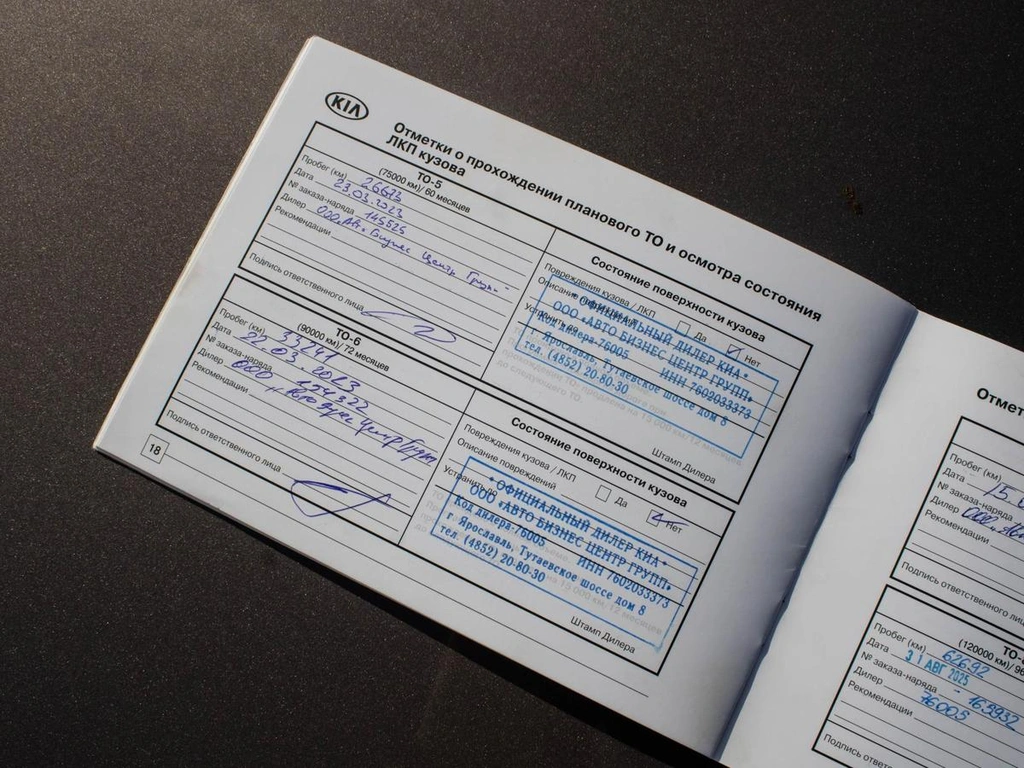 KIA
Отметки о прохождении планового ТО и осмотра состояния
ЛКП кузова
ТО-5
(75000 км)/ 60 месяцев
Пробег (км) 26673
Дата 23.03.2023
№ заказа-наряда 145525
Дилер ООО "Авто Бизнес Центр Групп"
Рекомендации
Подпись ответственного лица
Состояние поверхности кузова
Повреждения кузова / ЛКП Да Нет
Описание
Устранить до
• ОФИЦИАЛЬНЫЙ ДИЛЕР КИА •
ООО «АВТО БИЗНЕС ЦЕНТР ГРУПП»
Код дилера-76005 ИНН 7602033373
г. Ярославль, Тутаевское шоссе дом 8
тел. (4852) 20-80-30
Штамп Дилера
ТО-6
(90000 км)/ 72 месяцев
Пробег (км) 33741
Дата 22.03.2023
№ заказа-наряда 154322
Дилер ООО "Авто Бизнес Центр Групп"
Рекомендации
Подпись ответственного лица
Состояние поверхности кузова
Повреждения кузова / ЛКП Да Нет
Описание повреждений
Устранить до
• ОФИЦИАЛЬНЫЙ ДИЛЕР КИА •
ООО «АВТО БИЗНЕС ЦЕНТР ГРУПП»
Код дилера-76005 ИНН 7602033373
г. Ярославль, Тутаевское шоссе дом 8
тел. (4852) 20-80-30
Штамп Дилера
18
Пробег (км)
Дата 15.
№ заказа-наряда
Дилер ООО
Рекомендации
Подпись ответственного
(120000 км)/ 96
Пробег (км) 62692
Дата 31 АВГ 2025
№ заказа-наряда
Дилер 76005
Рекомендации
Подпись ответственного